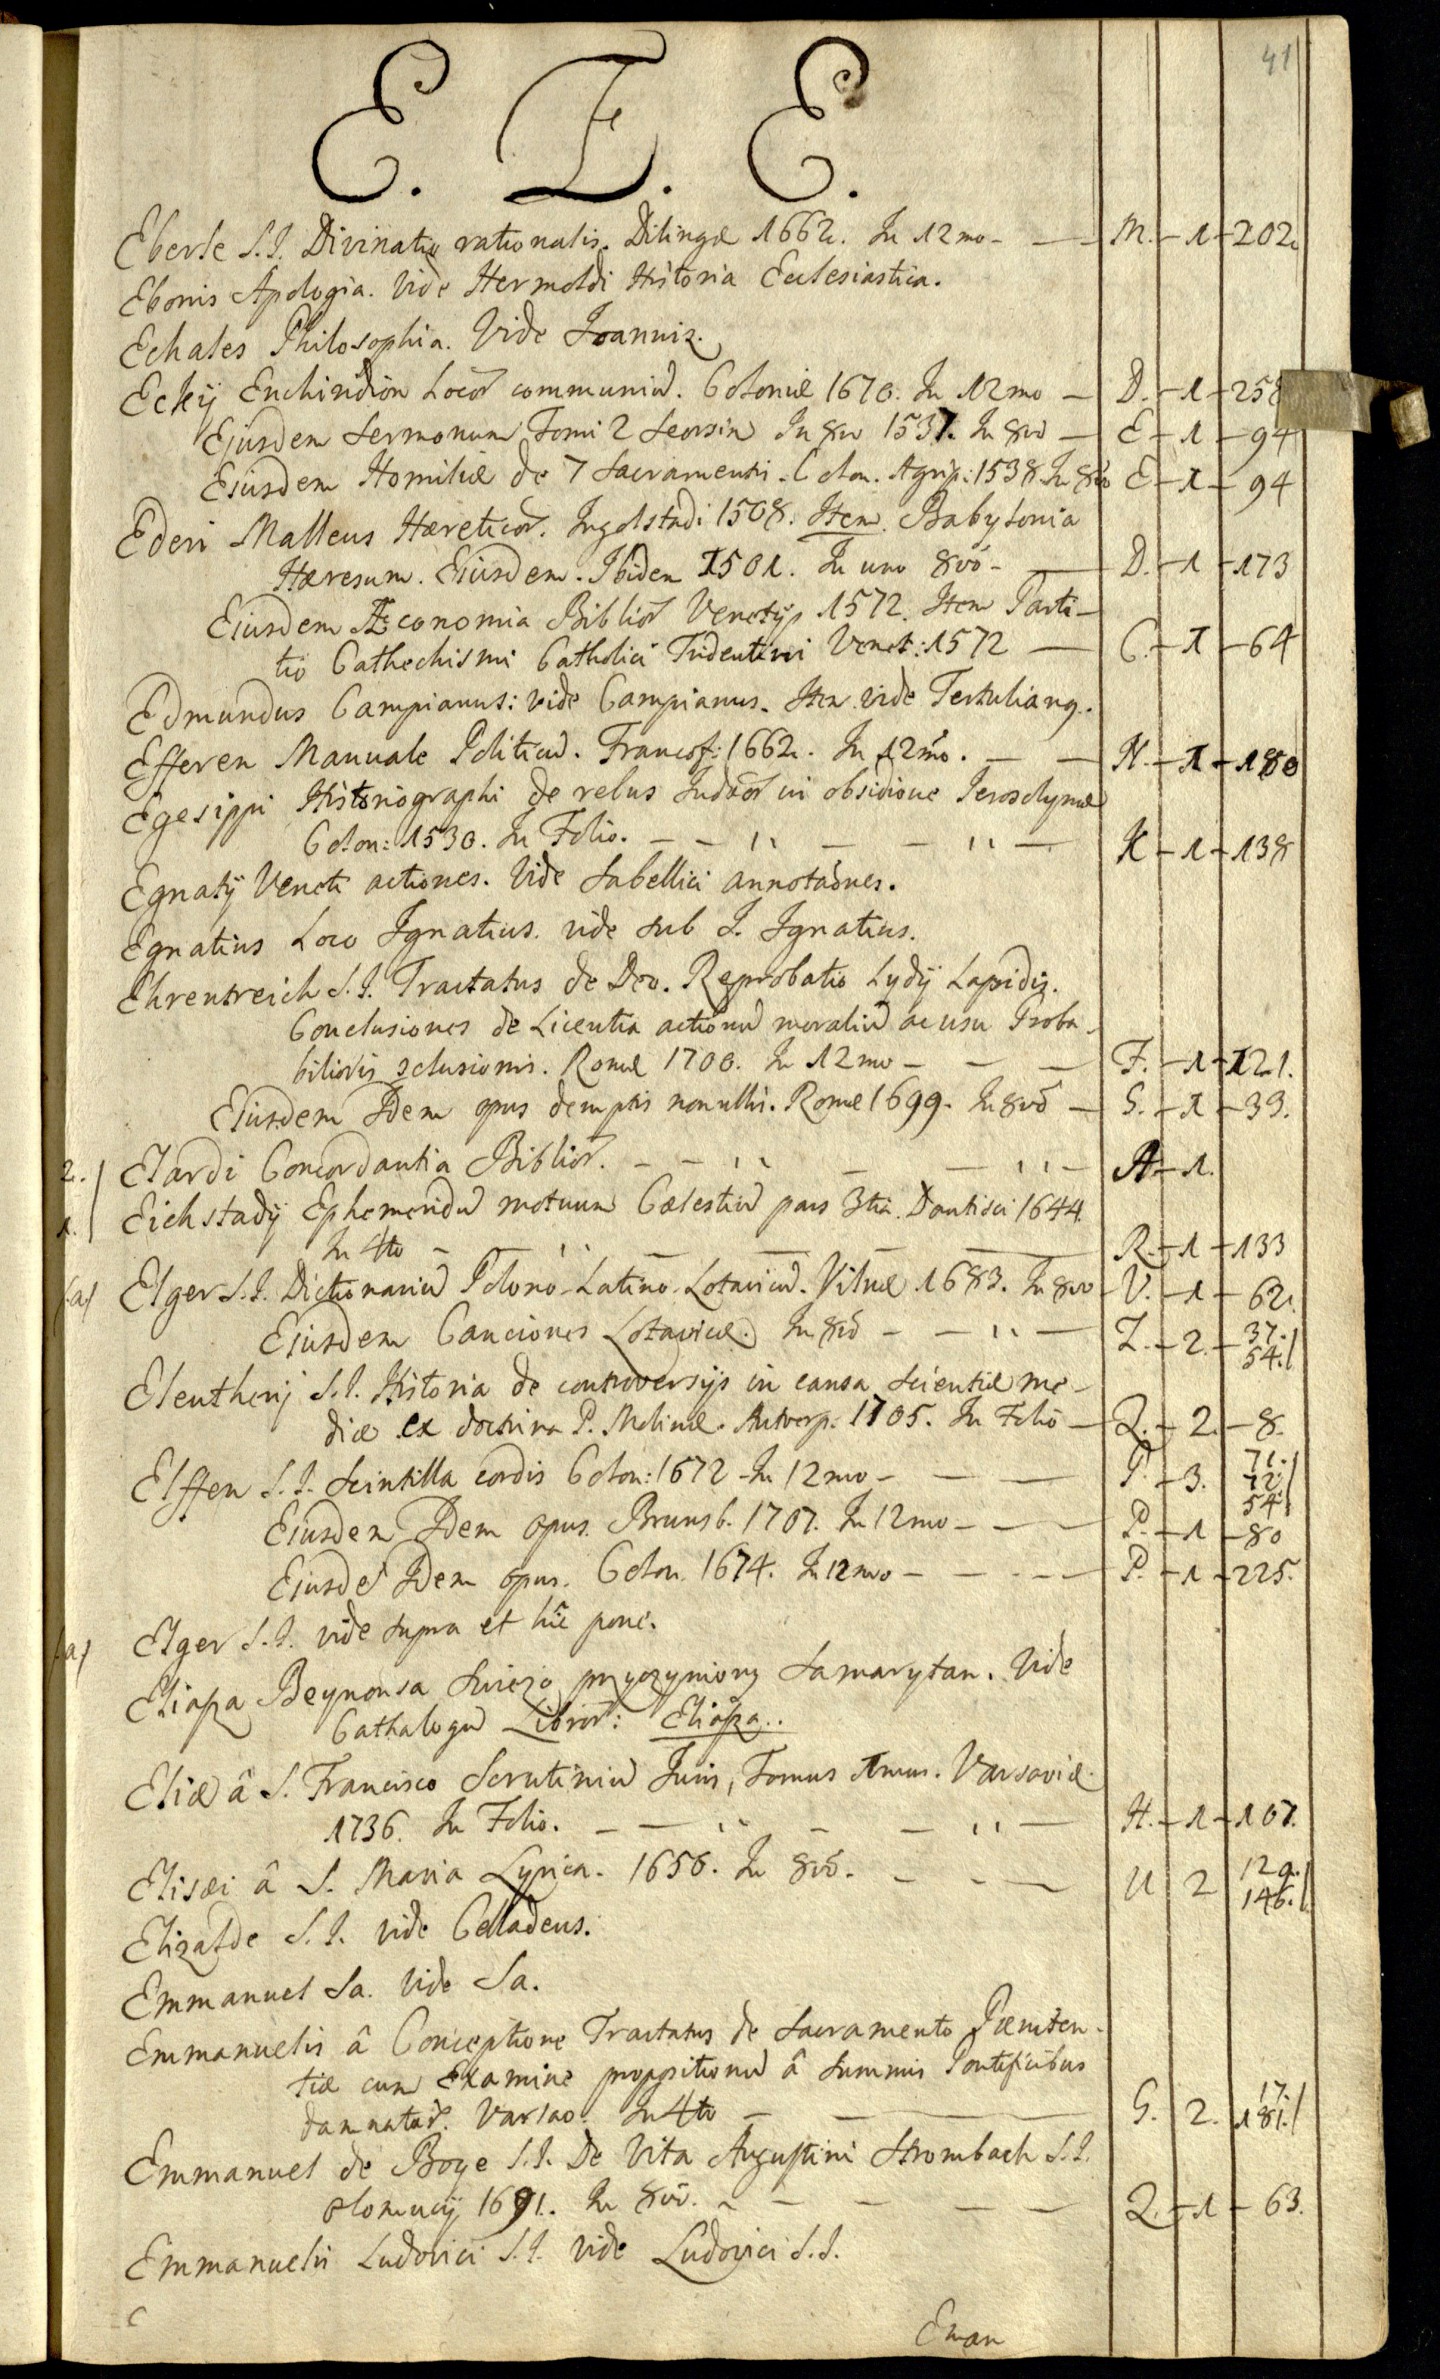 41
E. E. E.
Eberle S.J. Divinatio rationalis. Dilingæ 1662. In 12mo - — M. - 1 - 202.
Ebonis Apologia. Vide Hermoldi Historia Ecclesiastica.
Echales Philosophia. Vide Joannis.
Eckij Enchiridion Locor communiu. Coloniæ 1670. In 12mo — D. - 1 - 258
Ejusdem Sermonum Tomi 2 seorsim In 8vo 1537. In 8vo — E - 1 - 94
Eiusdem Homiliæ de 7 Sacramentis. Colon. Agrip: 1538 In 8vo E - 1 - 94
Ederi Malleus Hæreticor. Ingolstadi 1508. Item Babylonia
Hæresum. Eiusdem. Ibidem 1501. In uno 8vo - — D. - 1 - 173
Eiusdem Æconomia Biblior Venetijs 1572. Item Parti-
tio Cathechismi Catholici Tridentini Venet: 1572 — C. - 1 - 64
Edmundus Campianus: vide Campianus. Item vide Tertulianq.
Efferen Manuale Politicu. Francof: 1662. In 12mo. — — N. - 1 - 180
Egesippi Historiographi de rebus Judæor in obsidione Jerosolymæ
Colon: 1530. In Folio. - - ,, — - ,, — K - 1 - 138
Egnatij Veneti actiones. Vide Sabellici annotaones.
Egnatius Loco Ignatius. vide sub I. Ignatius.
Ehrentreich S.J. Tractatus de Deo. Reprobatio Lydij Lapidis.
Conclusiones de Licentia actionu moraliu ac usu Proba-
bilioris sclusionis. Romæ 1700. In 12mo - — — F. - 1 - 121.
Eiusdem Idem opus demptis nonullis. Romæ 1699. In 8vo — G. - 1 - 33.
2. / Elardi Concordantia Biblior. - - ,, — — ,, - A - 1.
1. / Eichstadij Ephemeridu motuum Cælestiu pars 3tia. Dantisci 1644.
In 4to - — ,, — — — R. - 1 - 133
/a/ Elger S.J. Dictionariu Polono-Latino-Lotavicu. Vilnæ 1683. In 8vo - V. - 1 - 62.
Eiusdem Canciones Lotavicæ. In 8vo - - ,, — Z. - 2. - 37. 54./
Eleutherij S.J. Historia de controversijs in causa scientiæ me-
diæ ex doctrina P. Molinæ. Antverp: 1705. In Folio — Q. - 2. - 8.
Elffen S.J. Scintilla cordis Colon: 1672 - In 12mo - — — P. - 3. 71. 72. 54./
Eiusdem Idem opus. Brunsb. 1707. In 12mo - - — P. - 1 - 80
Eiusde Idem opus. Colon. 1674. In 12mo - - - — P. - 1 - 225.
/a/ Elger S.J. vide supra et hic pone.
Eliasza Beynonsa Swiezo przyczyniony Samarytan. Vide
Cathalogu Libror: Eliasza..
Eliæ â S. Francisco Scrutiniu Juris, Tomus 1mus. Varsaviæ
1736. In Folio. - — ,, - - ,, — H. - 1 - 107.
Elisæi â S. Maria Lyrica. 1650. In 8vo. - - — U 2 129. 146./
Elizalde S.J. vide Celladeus.
Emmanuel Sa. Vide Sa.
Emmanuelis â Conceptione Tractatus de Sacramento Pæniten-
tiæ cum Examine propositionu â Summis Pontificibus
damnatar. Varsao. In 4to — — G. 2. 17. 181./
Emmanuel de Boye S.J. De Vita Augustini Strombach S.J.
Olomucij 1691. In 8vo. - — — — — Q. - 1 - 63.
Emmanuelis Ludovici S.J. vide Ludovici S.J.
Eman